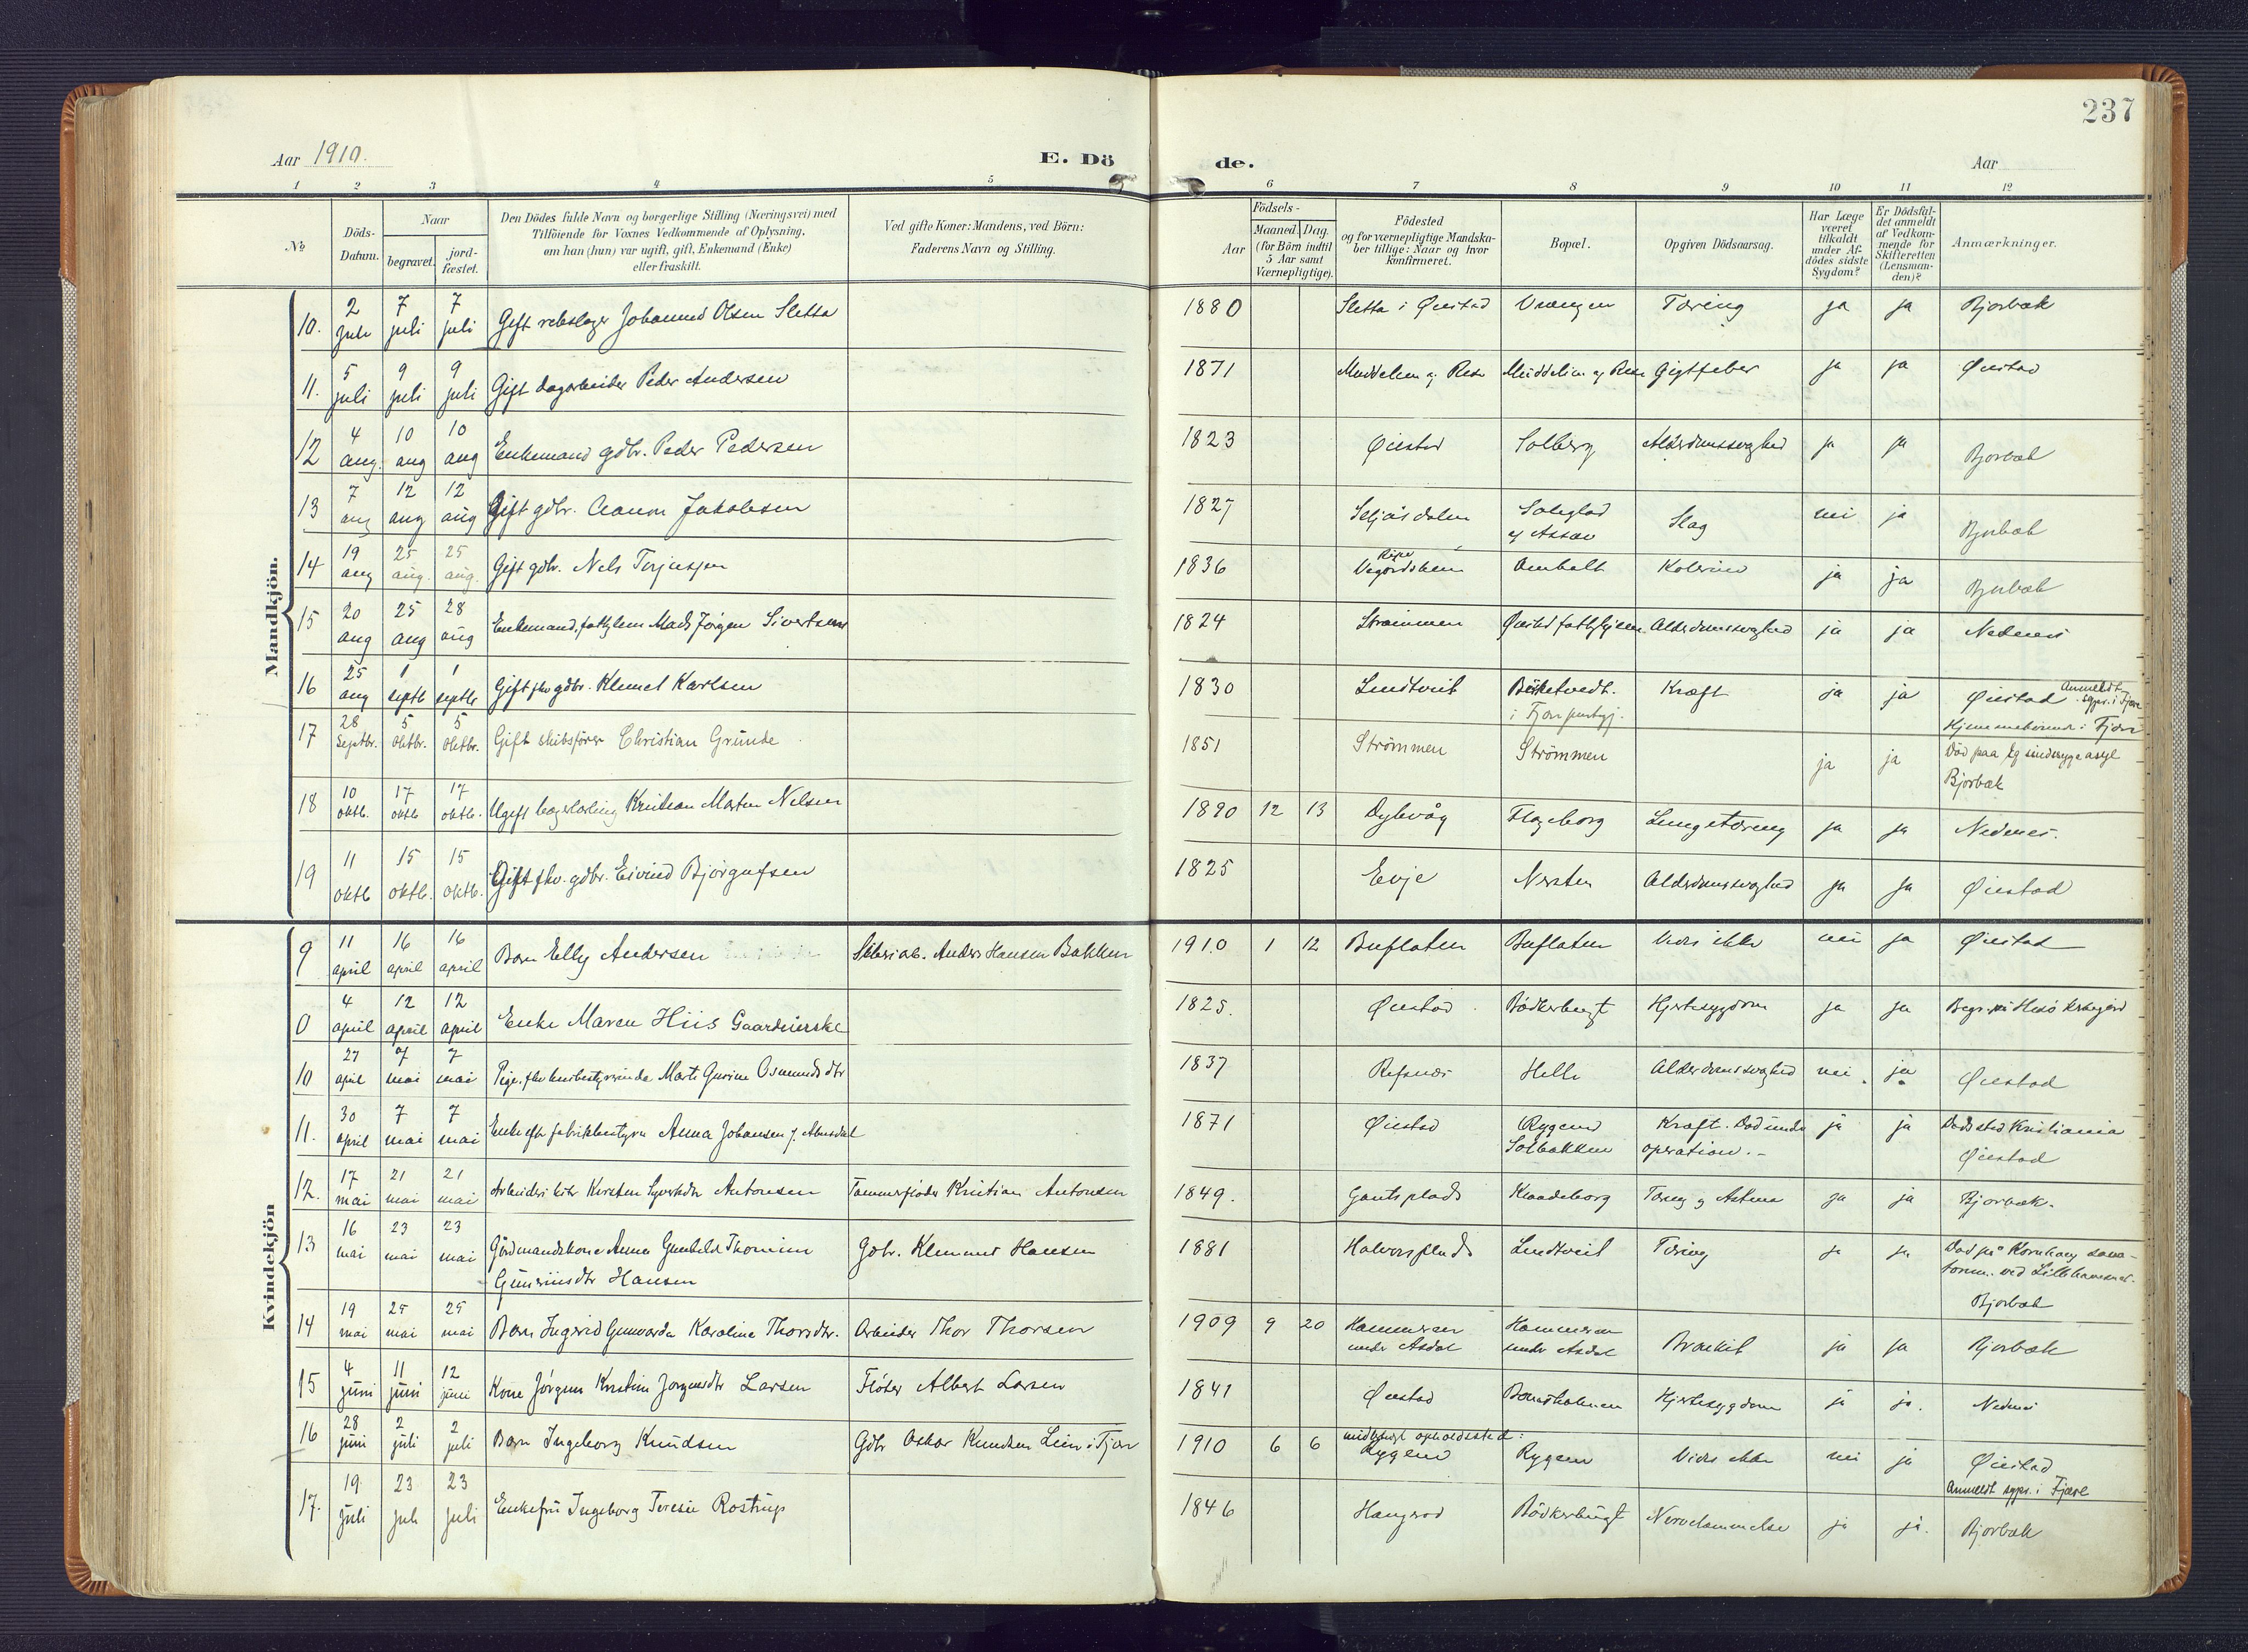 237
Aar 1910.
E. Dö
de.
Aar
1 2 3 4 5 6 7 8 9 10 11 12
No
Döds-Datum.
Naar
begravet.
jord-fæstet.
Den Dödes fulde Navn og borgerlige Stilling (Næringsvei) med
Tilföiende for Voxnes Vedkommende af Oplysning,
om han (hun) var ugift, gift, Enkemand (Enke)
eller fraskilt.
Ved gifte Koner: Mandens, ved Börn:
Faderens Navn og Stilling.
Födsels-
Aar
Maaned. Dag.
(for Börn indtil
5 Aar samt
Værnepligtige).
Födested
og for værnepligtige Mandska-
ber tillige: Naar og hvor
Konfirmeret.
Bopæl.
Opgiven Dödsaarsag.
Har Læge
været
tilkaldt
under Af-
dödes sidste
Sygdom?
Er Dödsfal-
det anmeldt
af Vedkom-
mende for
Skifteretten
(Lensman-
den)?
Anmærkninger.
Mandkjön.
10. 2 juli 7 juli 7 juli Gift rebslager Johannes Olsen Sletta 1880 Sletta i Øiestad Vrengen Tæring ja ja Bjorbæk
11. 5 juli 9 juli 9 juli Gift dagarbeider Peder Andersen 1871 Gigtfeber ja ja Øiestad
12 4 aug. 10 aug 10 aug Enkemand gdbr. Peder Pedersen 1823 Øiestad Solberg Alderdomssvaghed ja ja Bjorbæk
13 7 aug 12 aug 12 aug Gift gdbr. Aanon Jakobsen 1827 Seljåsdalen Slag nei ja Bjorbæk
14 19 aug 25 aug. 25 aug. Gift gdbr. Nels Terjesen 1836 Vegårdsheien ja ja Bjorbæk
15 20 aug 25 aug 28 aug Enkemand, fattiglem Mads Jörgen Sivertsen 1824 Strømmen Alderdomssvaghed ja ja Nedenes
16 25 aug 1 septb 1 septbr Gift fhv gdbr. Klemet Karlsen 1830 Lindtveit i Fjære Kræft ja ja Øiestad Anmeldt sgpr. i Fjære
Hjemmehørende i Fjære
17 28 Septbr. 5 oktbr. 5 oktbr. Gift skibsfører Christian Grunde 1851 Strömmen Strömmen ja ja Död paa Eg sindssygeasyl
Bjorbæk
18 10 oktb. 17 oktb 17 oktb. Ugift bagerlærling Kristian Martin Nilsen 1890 12 13 Dybvåg Flageborg Lungetæring ja ja Nedenes.
19 11 oktb 15 oktb. 15 oktb. Gift fhv. gdbr. Eivind Bjorgufsen 1825 Evje Nersten Alderdomssvaghed ja ja Øiestad
Kvindekjön
9 11 april 16 april 16 april Barn Elly Andersen Anders Hansen Bakken 1910. 1 12 Buflaten Buflaten Vides ikke nei ja Øiestad
0 4 april 12 april 12 april Enke Maren Hiis Gaardmerske 1825. Øiestad Bödkerbugt Hjertesygdom ja ja Begr. på Hisö kirkegård
10 27 april 7 mai 7 mai Pige, fhv husbestyrerinde Marte Gurine Osmundsdtr 1837 Refsnes Helle Alderdomssvaghed nei. ja Øiestad
11. 30 april 7 mai 7 mai Enke efter fabrikbestyrer Anna Johansen 1871 Øiestad Rygene
Solbakken Kræft. Död under
operation.- ja ja Dödssted Kristiania
Øiestad
12. 17 mai 21 mai 21 mai Arbeiders Kirsten Antonsen Tømmerfløder Kristian Antonsen 1849. Gautsplads Knadeborg Tæring og Astma ja ja Bjorbæk.
13 16 mai 23 mai 23 mai Gårdmandskone Anna Gunhild Thomine
Guneriusdtr Hansen Gdbr. Klemmet Hansen 1881 Halvorsplads Lindtveit Tæring ja ja Död på Kornhaug sana-
torium ved Lillehammer.
Bjorbæk
14 19 mai 25 mai 25 mai Barn Ingerid Gunvarda Karoline Thorsdtr. Arbeider Thor Thorsen 1909 9 20 Hammeren
under Asdal Hammeren
under Asdal Bronkit ja ja Bjorbæk
15 4 juni 11 juni 12 juni Kone Jörgine Kristine Jorgensdtr Larsen Flöter Albert Larsen 1841 Øiestad Hjertesygdom ja ja. Nedenes
16 28 juni 2 juli 2 juli Barn Ingeborg Knudsen Gdbr Oskar Knudsen Lein i Fjære 1910 6 6 midlertidigt opholdssted:
Rygene Rygene Vides ikke nei ja Øiestad
Anmeldt sgpr. i Fjære
17. 19 juli 23 juli 23 juli Enkefru Ingeborg Terese Rostrup 1846 Bödkerbugt Nervelammelse ja ja. Bjorbæk